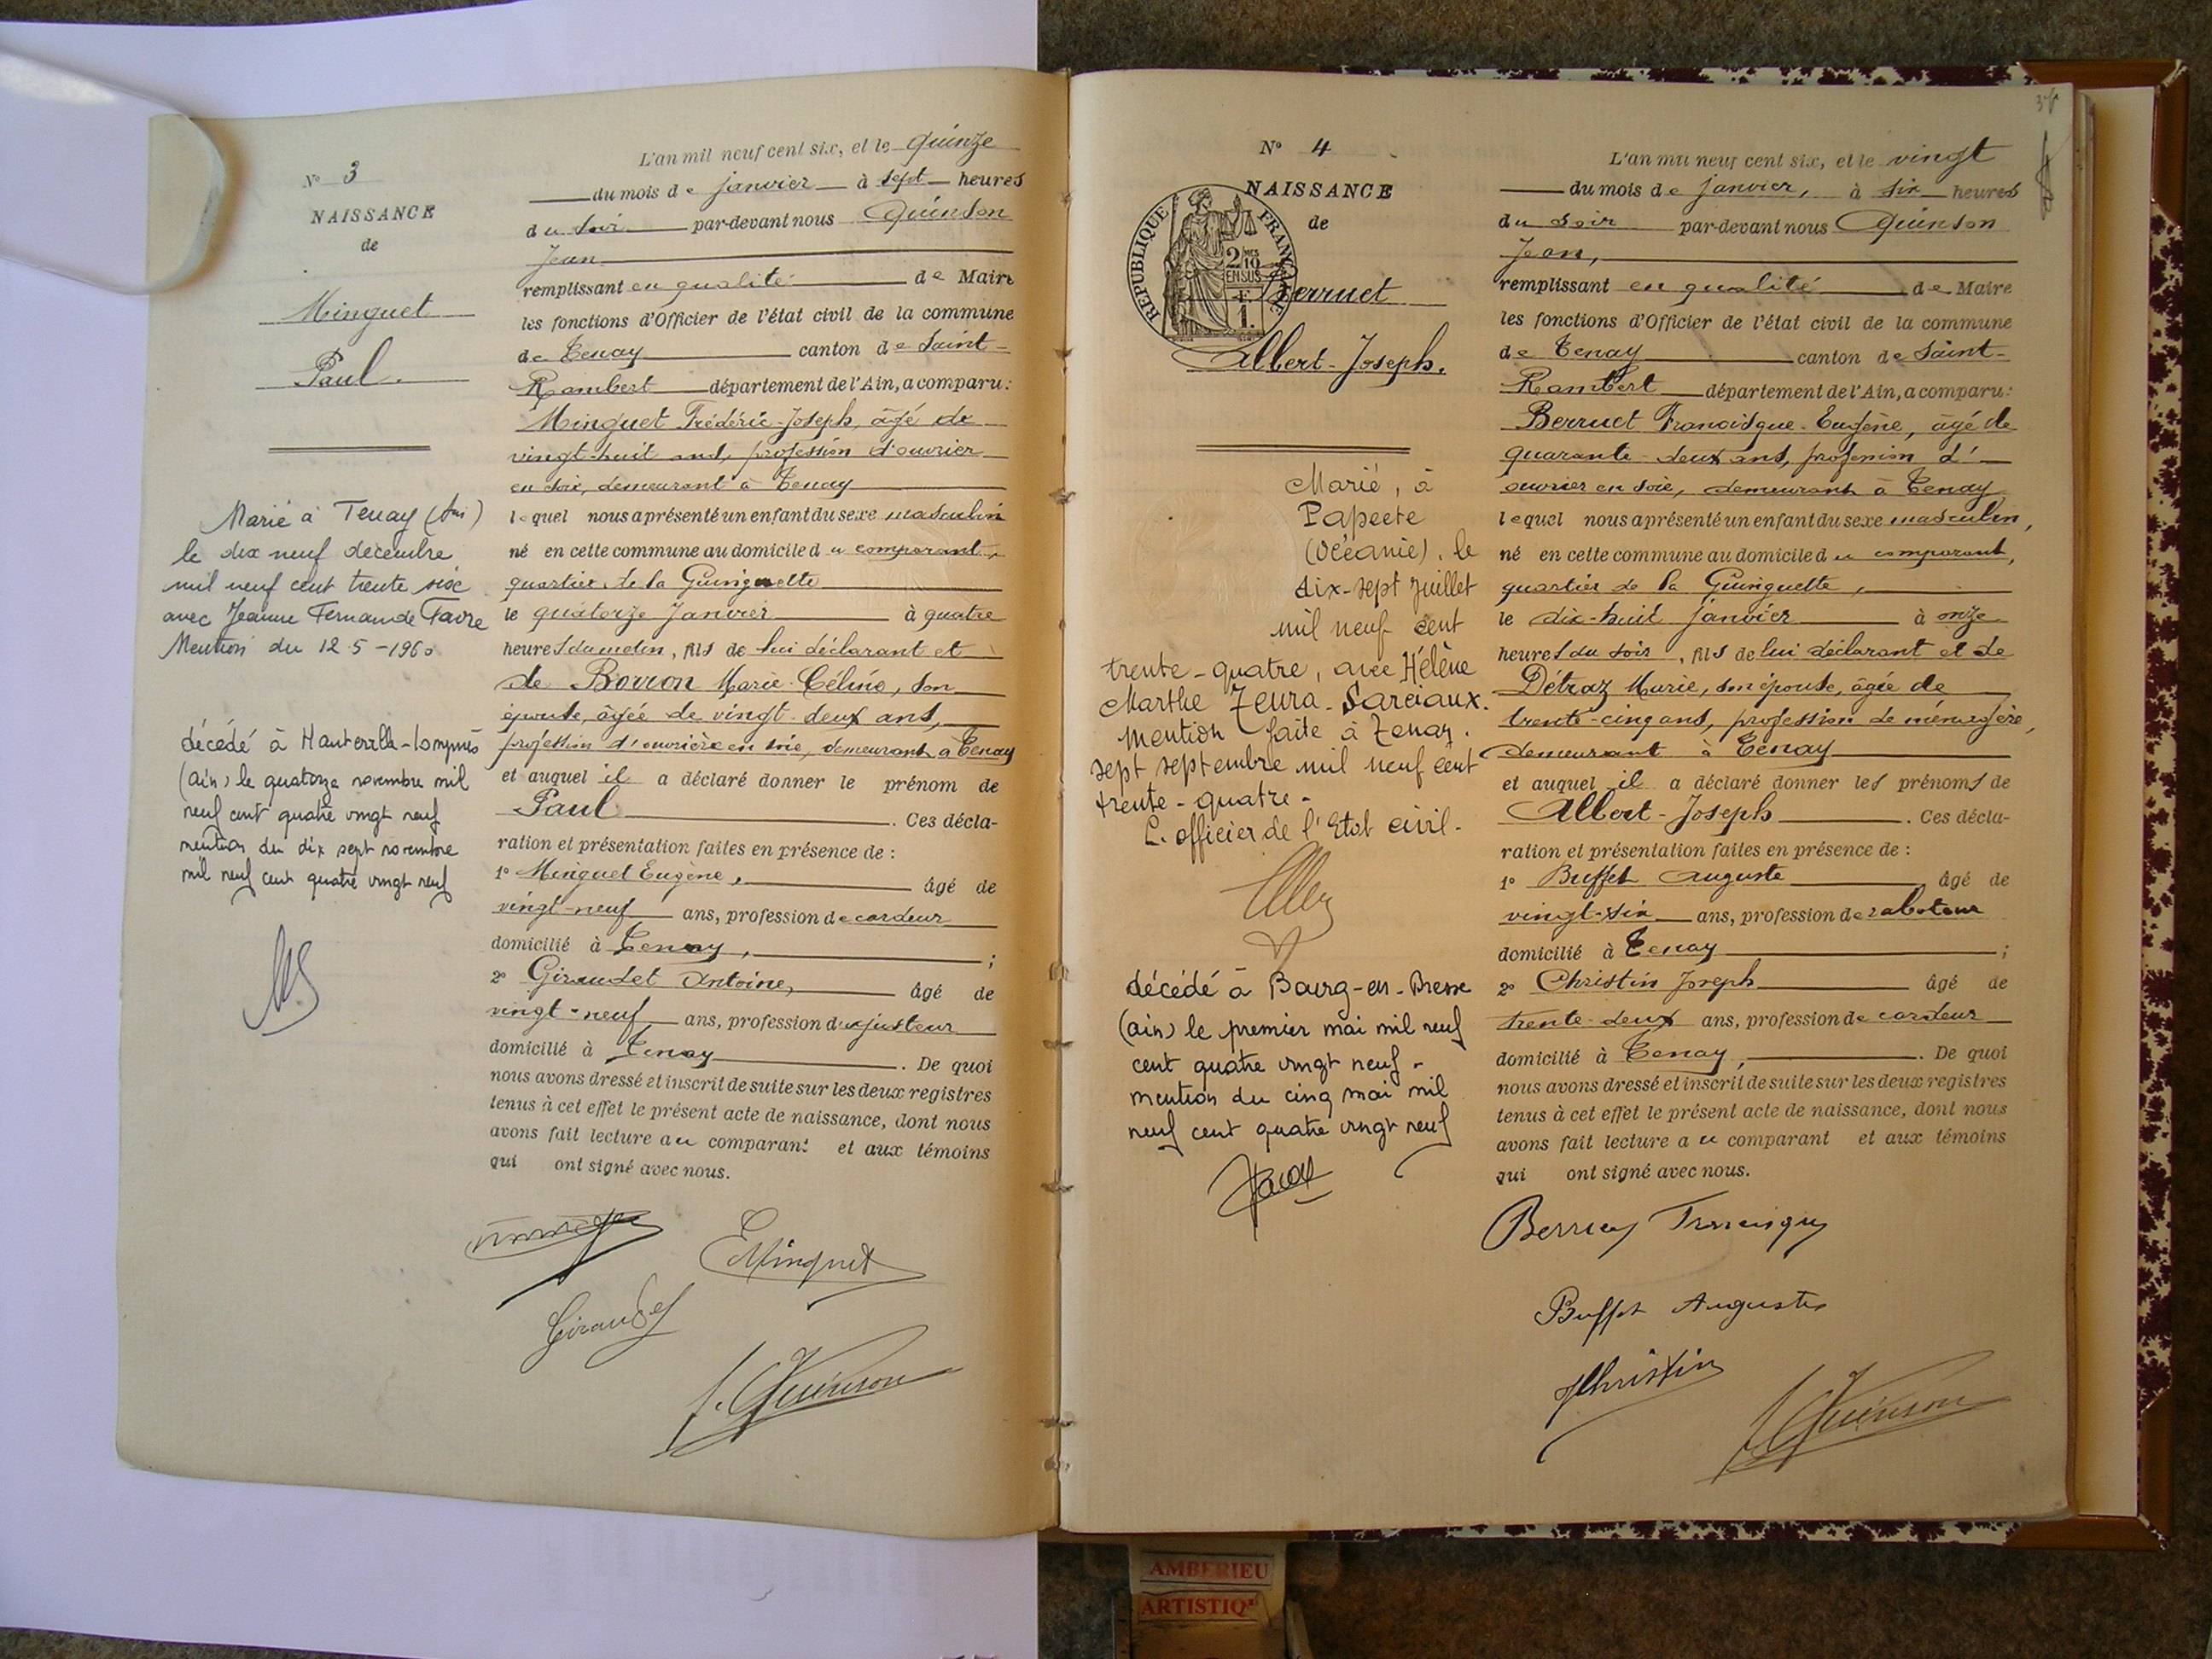 N° 3
NAISSANCE
de
Minguet
Paul.
Marié à Tenay (Ain)
le dix neuf décembre
mil neuf cent trente six
avec Jeanne Fernande Favre
Mention du 12-5-1960
décédé à Hauteville-Lompnès
(Ain) le quatorze novembre mil
neuf cent quatre vingt neuf
mention du dix sept novembre
mil neuf cent quatre vingt neuf
L'an mil neuf cent six, et le quinze
du mois de janvier à sept heures
du soir par-devant nous Quinson
Jean
remplissant en qualité de Maire
les fonctions d'Officier de l'état civil de la commune
de Tenay canton de Saint-
Rambert département de l'Ain, a comparu:
Minguet Frédéric-Joseph, âgé de
vingt-huit ans, profession d'ouvrier
en soie, demeurant à Tenay
lequel nous a présenté un enfant du sexe masculin
né en cette commune au domicile du comparant,
quartier de la Guinguette
le quatorze janvier à quatre
heures du matin, fils de lui déclarant et
de Borron Marie-Céline, son
épouse, âgée de vingt-deux ans,
profession d'ouvrière en soie, demeurant à Tenay
et auquel il a déclaré donner le prénom de
Paul. Ces décla-
ration et présentation faites en présence de :
1° Minguet Eugène, âgé de
vingt-neuf ans, profession de cardeur
domicilié à Tenay, ;
2° Giraudet Antoine, âgé de
vingt-neuf ans, profession d'ajusteur
domicilié à Tenay. De quoi
nous avons dressé et inscrit de suite sur les deux registres
tenus à cet effet le présent acte de naissance, dont nous
avons fait lecture au comparant et aux témoins
qui ont signé avec nous.
EMinguet
Giraudet
J. Quinson
N° 4
NAISSANCE
de
REPUBLIQUE FRANÇAISE
2/10
EN SUS
1.
Berruet
Albert-Joseph.
Marié, à
Papeete
(Océanie), le
dix-sept juillet
mil neuf cent
trente-quatre, avec Hélène
Marthe Zeura-Sarciaux.
Mention faite à Tenay.
sept septembre mil neuf cent
trente-quatre-
L'officier de l'Etat civil-
décédé à Bourg-en-Bresse
(Ain) le premier mai mil neuf
cent quatre vingt neuf-
mention du cinq mai mil
neuf cent quatre vingt neuf
L'an mil neuf cent six, et le vingt
du mois de janvier, à six heures
du soir par-devant nous Quinson
Jean,
remplissant en qualité de Maire
les fonctions d'Officier de l'état civil de la commune
de Tenay canton de Saint-
Rambert département de l'Ain, a comparu:
Berruet Francisque-Eugène, âgé de
quarante-deux ans, profession d'
ouvrier en soie, demeurant à Tenay
lequel nous a présenté un enfant du sexe masculin,
né en cette commune au domicile du comparant,
quartier de la Guinguette,
le dix-huit janvier à onze
heures du soir, fils de lui déclarant et de
Détraz Marie, son épouse, âgée de
trente-cinq ans, profession de ménagère,
demeurant à Tenay
et auquel il a déclaré donner les prénoms de
Albert-Joseph. Ces décla-
ration et présentation faites en présence de :
1° Buffet Auguste âgé de
vingt-six ans, profession de raboteur
domicilié à Tenay ;
2° Christin Joseph âgé de
trente-deux ans, profession de cardeur
domicilié à Tenay,. De quoi
nous avons dressé et inscrit de suite sur les deux registres
tenus à cet effet le présent acte de naissance, dont nous
avons fait lecture au comparant et aux témoins
qui ont signé avec nous.
Buffet Auguste
JChristin
J. Quinson
AMBERIEU
ARTISTIQ